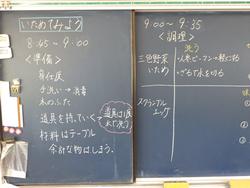 いためてみよう
8:45～9:00
<準備>
身仕度
手洗い→消毒
水のふた
道具を持っていく
道具は1度
水で洗う
材料はテーブル
余計な物はしまう。
9:00～9:35
<調理>
洗う
三色野菜
いため
にんじん・ピーマン→軽く拭る
ざるで水を切る
スクランブル
エッグ
①
②